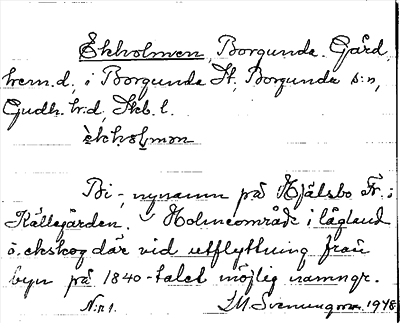 Ekholmen, Borgunda. Gård,
hem.d. i Borgunda St. Borgunda s:n,
Gudh. h:d, Skb. l.
èkhòlmən
Bi-, nynamn på Hjälsbo
Källegården. Holmeområde i lågland
o. ekskog där vid utflyttning från
byn på 1840-talet möjlig namngr.
N:r 1. 1948